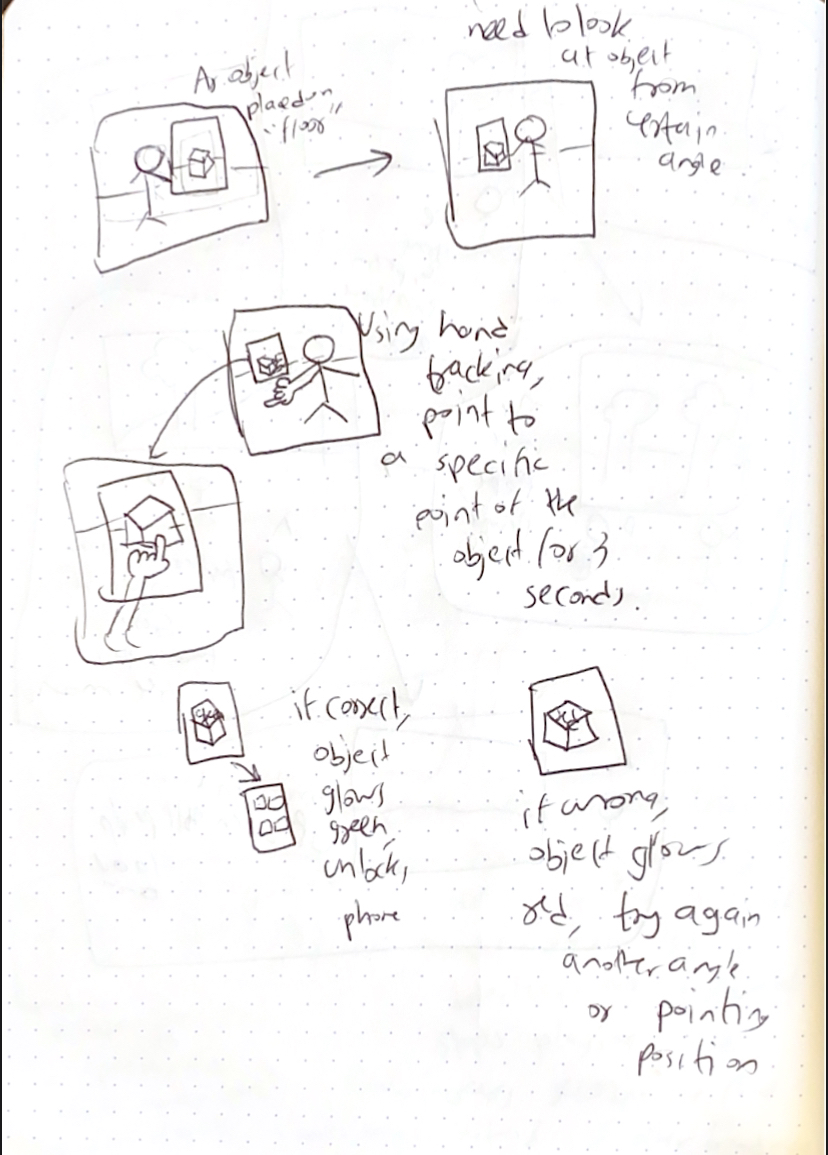 Ar object
placed on
"floor"
need to look
at object
from
certain
angle
Using hand
tracking,
point to
a specific
point of the
object for 3
seconds.
if correct,
object
glows
green,
unlock,
phone
if wrong,
object glows
red, try again
another angle
or pointing
position